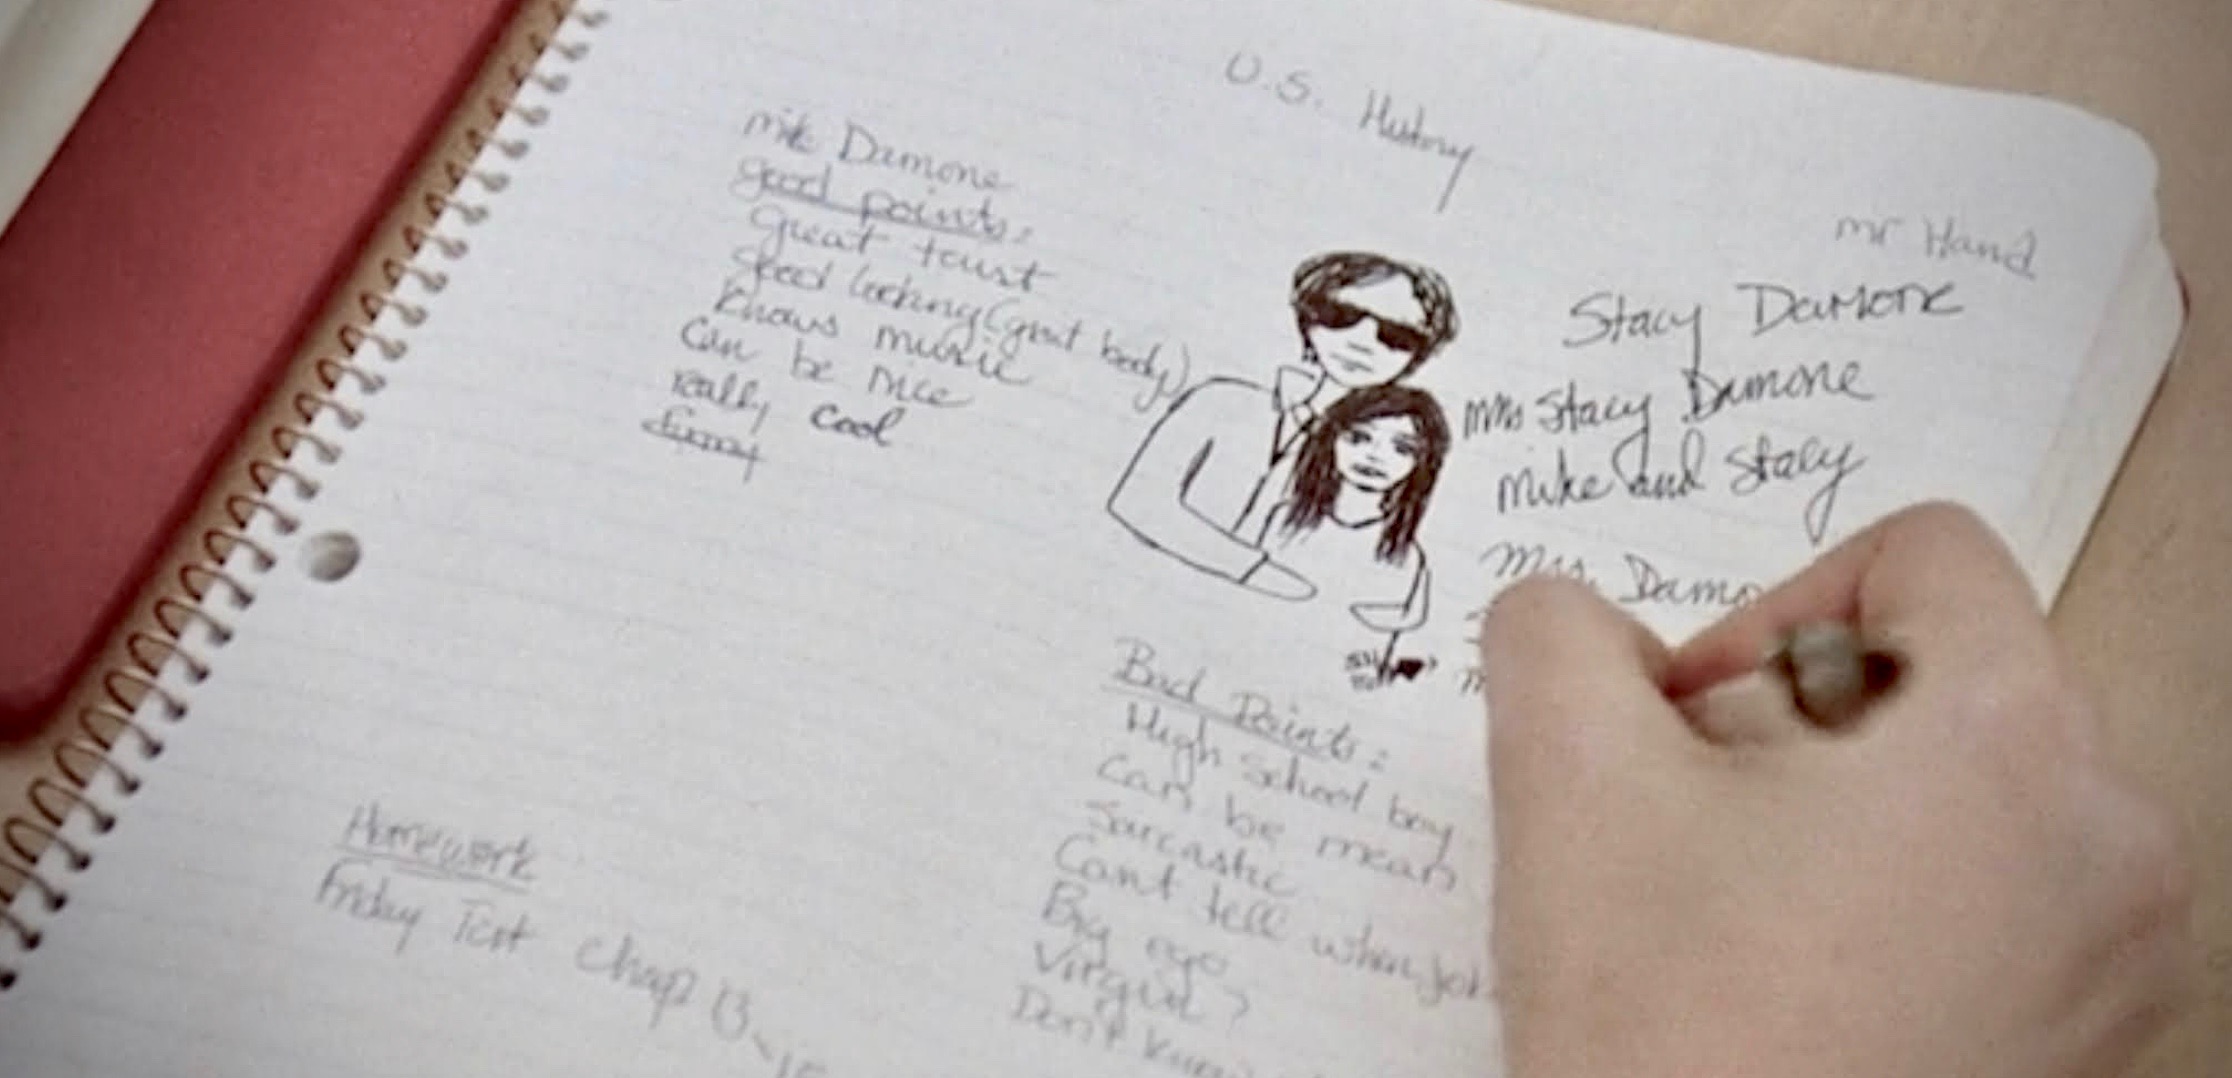 U.S. History
mr Hand
Mike Damone
good points:
great taust
good looking (great body)
Knows music
Can be nice
really cool
funny
Stacy Damone
Mrs Stacy Damone
Mike and Stacy
Mrs. Damo
Bad Points:
High School boy
Can be mean
Sarcastic
Cant tell when
Big ego
Virgin?
Don't know
Homework
Friday Test Chap 13-15